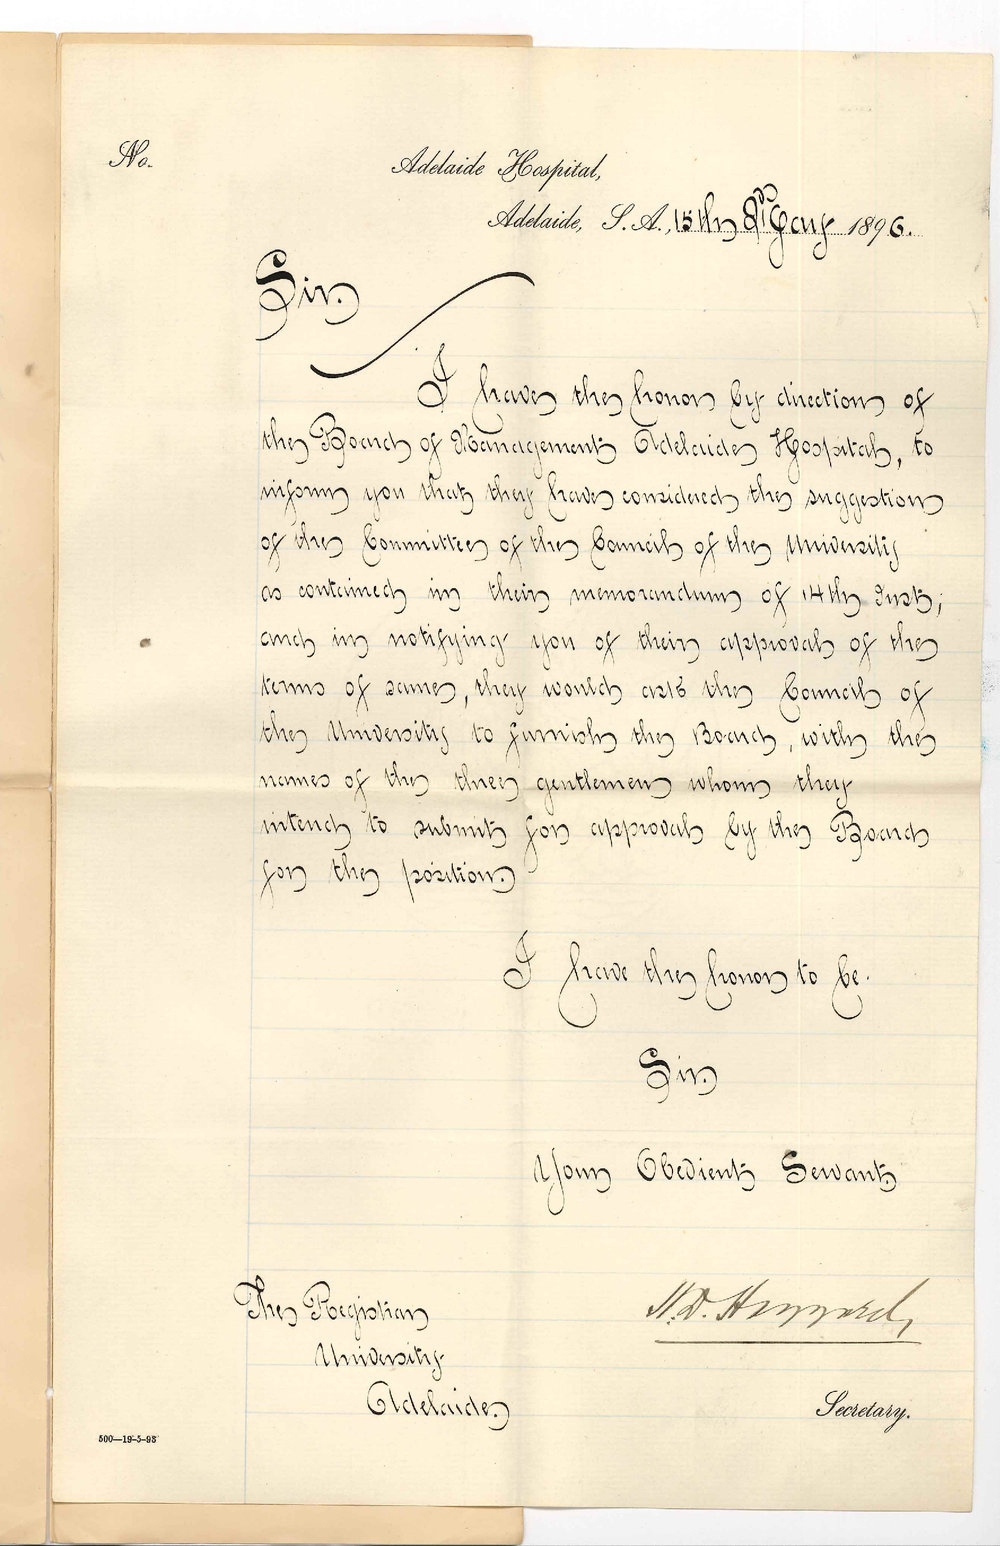 No.
Adelaide Hospital,
Adelaide, S. A., 15th May 1896.
Sir.
I have the honor by direction of
the Board of Management Adelaide Hospital, to
inform you that they have considered the suggestion
of the Committee of the Council of the University
as contained in their memorandum of 14th Inst;
and in notifying you of their approval of the
terms of same, they would ask the Council of
the University to furnish the Board, with the
names of the three gentlemen whom they
intend to submit for approval by the Board
for the position.
I have the honor to be.
Sir
Your Obedient Servant
The Registrar
University
Adelaide.
Secretary.
500—19-5-93